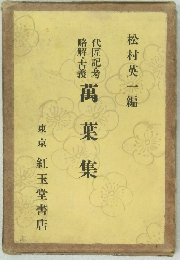 松村英一編
代匠記考
略解古義
萬葉集
東京 紅玉堂書店